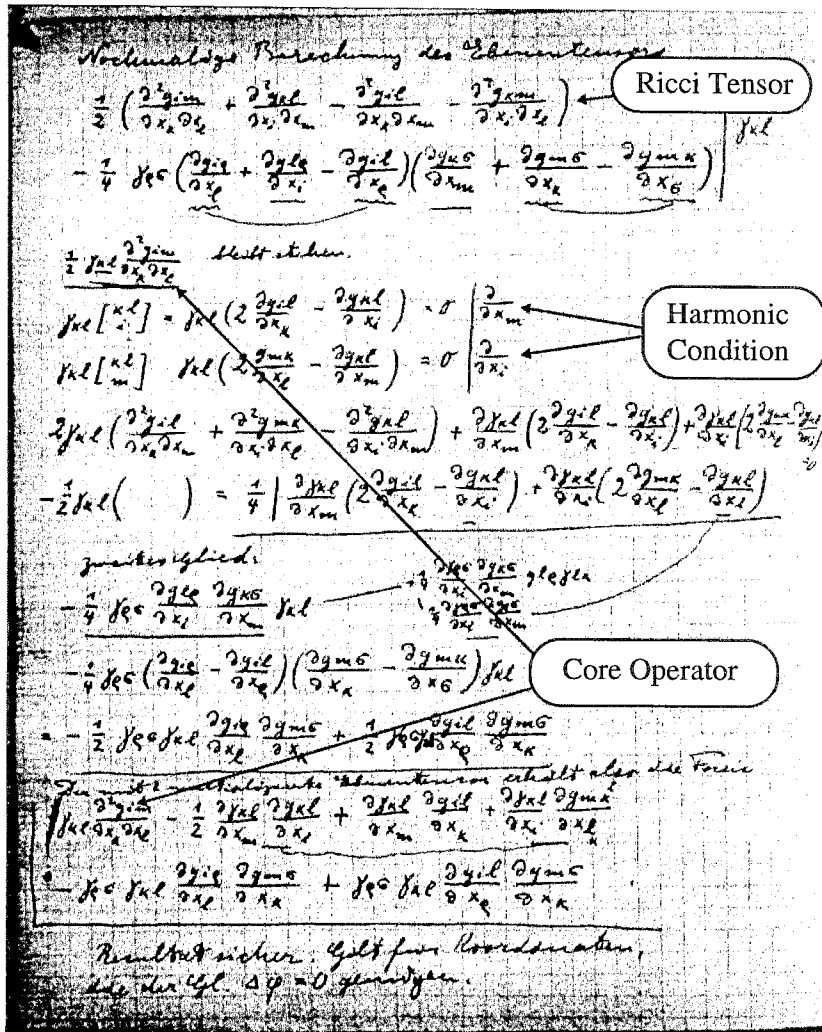 Nochmalige Berechnung des Ebenentensors
½ (∂²g_im/∂x_κ∂x_l + ∂²g_κl/∂x_i∂x_m − ∂²g_il/∂x_κ∂x_m − ∂²g_κm/∂x_i∂x_l) Ricci Tensor
− ¼ γ_ρσ (∂g_iρ/∂x_l + ∂g_lρ/∂x_i − ∂g_il/∂x_ρ)(∂g_κσ/∂x_m + ∂g_mσ/∂x_κ − ∂g_mκ/∂x_σ) | γ_κl
½ γ_κl ∂²g_im/∂x_κ∂x_l bleibt stehen.
γ_κl [κl i] = γ_κl (2 ∂g_il/∂x_κ − ∂g_κl/∂x_i) = 0 | ∂/∂x_m
Harmonic
Condition
γ_κl [κl m] γ_κl (2 ∂g_mκ/∂x_l − ∂g_κl/∂x_m) = 0 | ∂/∂x_i
2γ_κl (∂²g_il/∂x_κ∂x_m + ∂²g_mκ/∂x_i∂x_l − ∂²g_κl/∂x_i∂x_m) + ∂γ_κl/∂x_m (2 ∂g_il/∂x_κ − ∂g_κl/∂x_i) + ∂γ_κl/∂x_i (2 ∂g_mκ/∂x_l − ∂g_κl/∂x_i) = 0
− ½ γ_κl ( ) = ¼ | ∂γ_κl/∂x_m (2 ∂g_il/∂x_κ − ∂g_κl/∂x_i) + ∂γ_κl/∂x_i (2 ∂g_mκ/∂x_l − ∂g_κl/∂x_i)
zweites Glied:
− ¼ γ_ρσ ∂g_lρ/∂x_i ∂g_κσ/∂x_m γ_κl
∂γ_ρσ/∂x_i ∂g_κσ/∂x_m g_lρ γ_lκ
− ¼ γ_ρσ (∂g_iρ/∂x_l − ∂g_il/∂x_ρ)(∂g_mσ/∂x_κ − ∂g_mκ/∂x_σ) γ_κl
Core Operator
= − ½ γ_ρσ γ_κl ∂g_iρ/∂x_l ∂g_mσ/∂x_κ + ½ γ_ρσ ∂g_il/∂x_ρ ∂g_mσ/∂x_κ
Der mit 2 multiplizierte Ebenentensor erhält also die Form
γ_κl ∂²g_im/∂x_κ∂x_l − ½ ∂γ_κl/∂x_m ∂g_κl/∂x_i + ∂γ_κl/∂x_m ∂g_il/∂x_κ + ∂γ_κl/∂x_i ∂g_mκ/∂x_l
− γ_ρσ γ_κl ∂g_iρ/∂x_l ∂g_mσ/∂x_κ + γ_ρσ γ_κl ∂g_il/∂x_ρ ∂g_mσ/∂x_κ
Resultat sicher. Gilt für Koordinaten,
die der Gl. Δφ = 0 genügen.